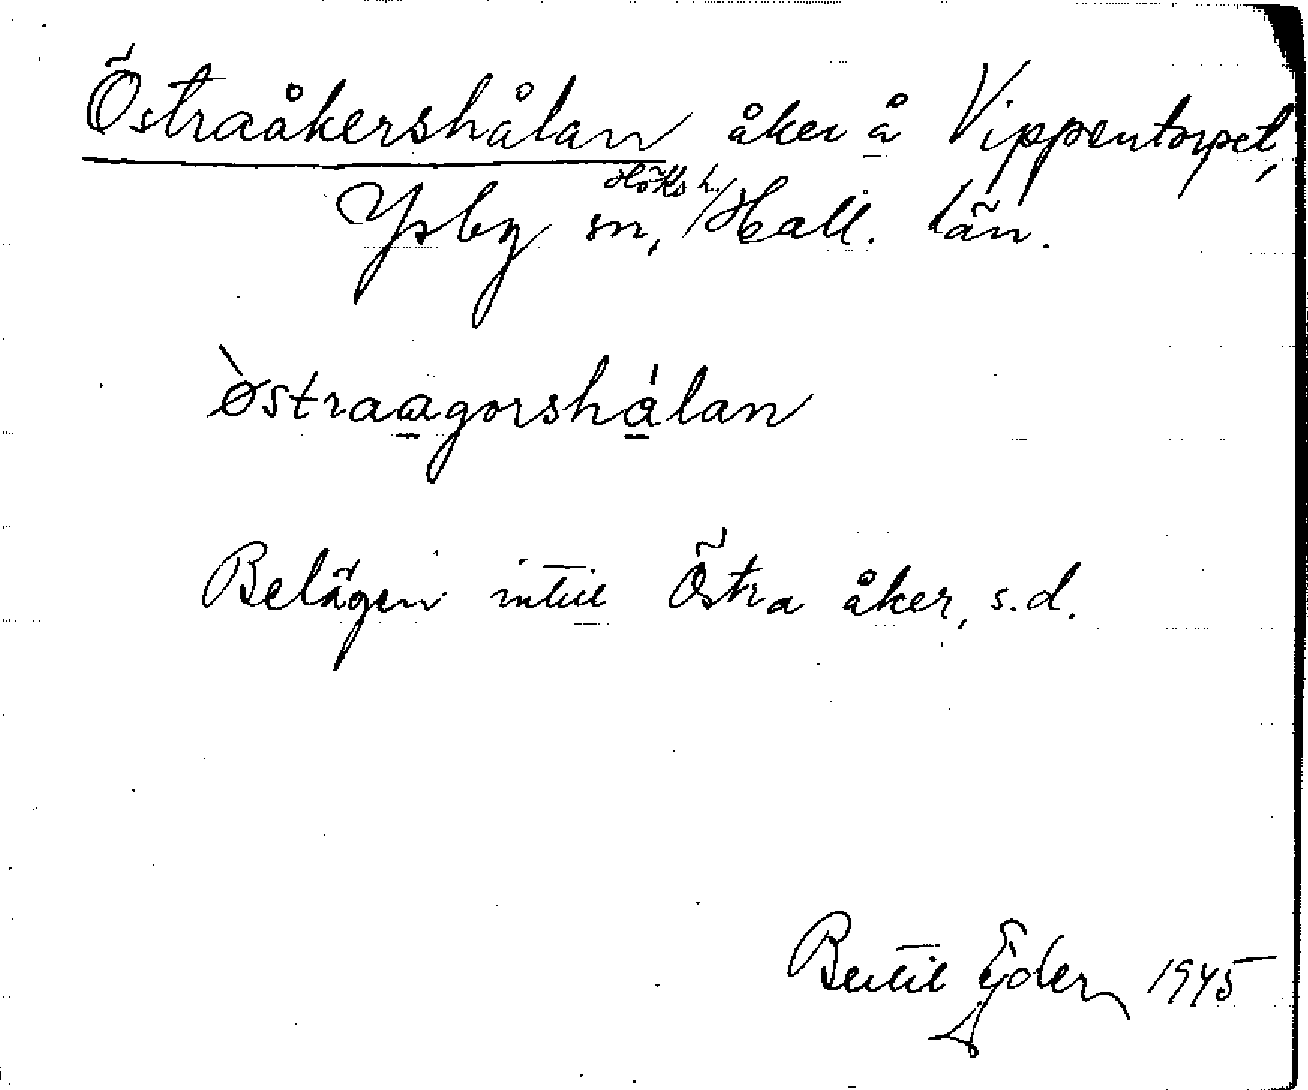 Östraåkershålan åker å Vippentorpet,
Ysby sn, Höks h. Hall. län.
òstraagorshålan
Belägen intill Östra åker, s.d.
Bertil Ejder 1945